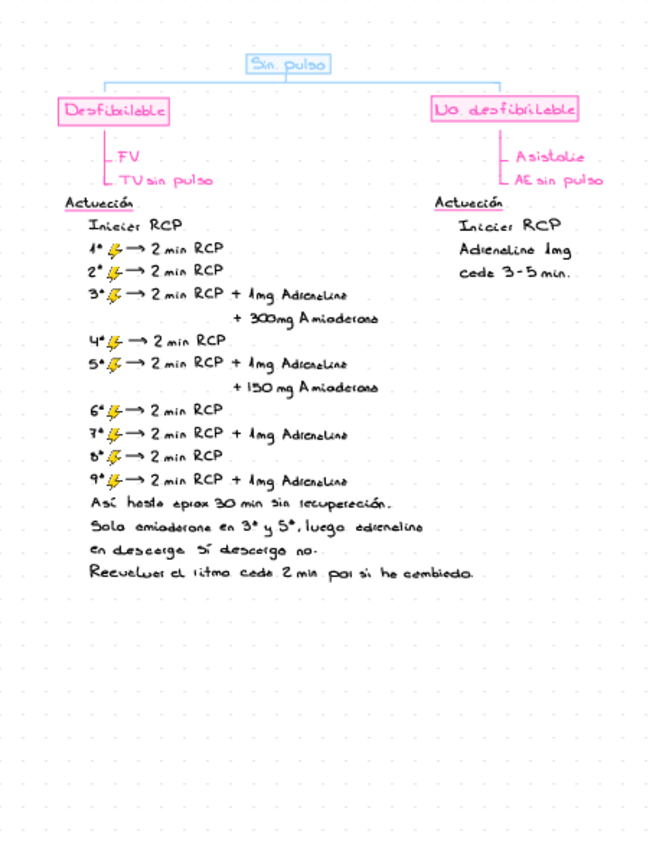 Sin pulso
Desfibrilable
No desfibrilable
FV
TV sin pulso
Asistolia
AE sin pulso
Actuación
Iniciar RCP
1ª ⚡ → 2 min RCP
2ª ⚡ → 2 min RCP
3ª ⚡ → 2 min RCP + 1mg Adrenalina
+ 300mg Amiodarona
4ª ⚡ → 2 min RCP
5ª ⚡ → 2 min RCP + 1mg Adrenalina
+ 150 mg Amiodarona
6ª ⚡ → 2 min RCP
7ª ⚡ → 2 min RCP + 1mg Adrenalina
8ª ⚡ → 2 min RCP
9ª ⚡ → 2 min RCP + 1mg Adrenalina
Así hasta aprox 30 min sin recuperación.
Solo amiodarona en 3ª y 5ª, luego adrenalina
en descarga sí descarga no.
Reevaluar el ritmo cada 2 min por si ha cambiado.
Actuación
Iniciar RCP
Adrenalina 1mg
cada 3-5 min.